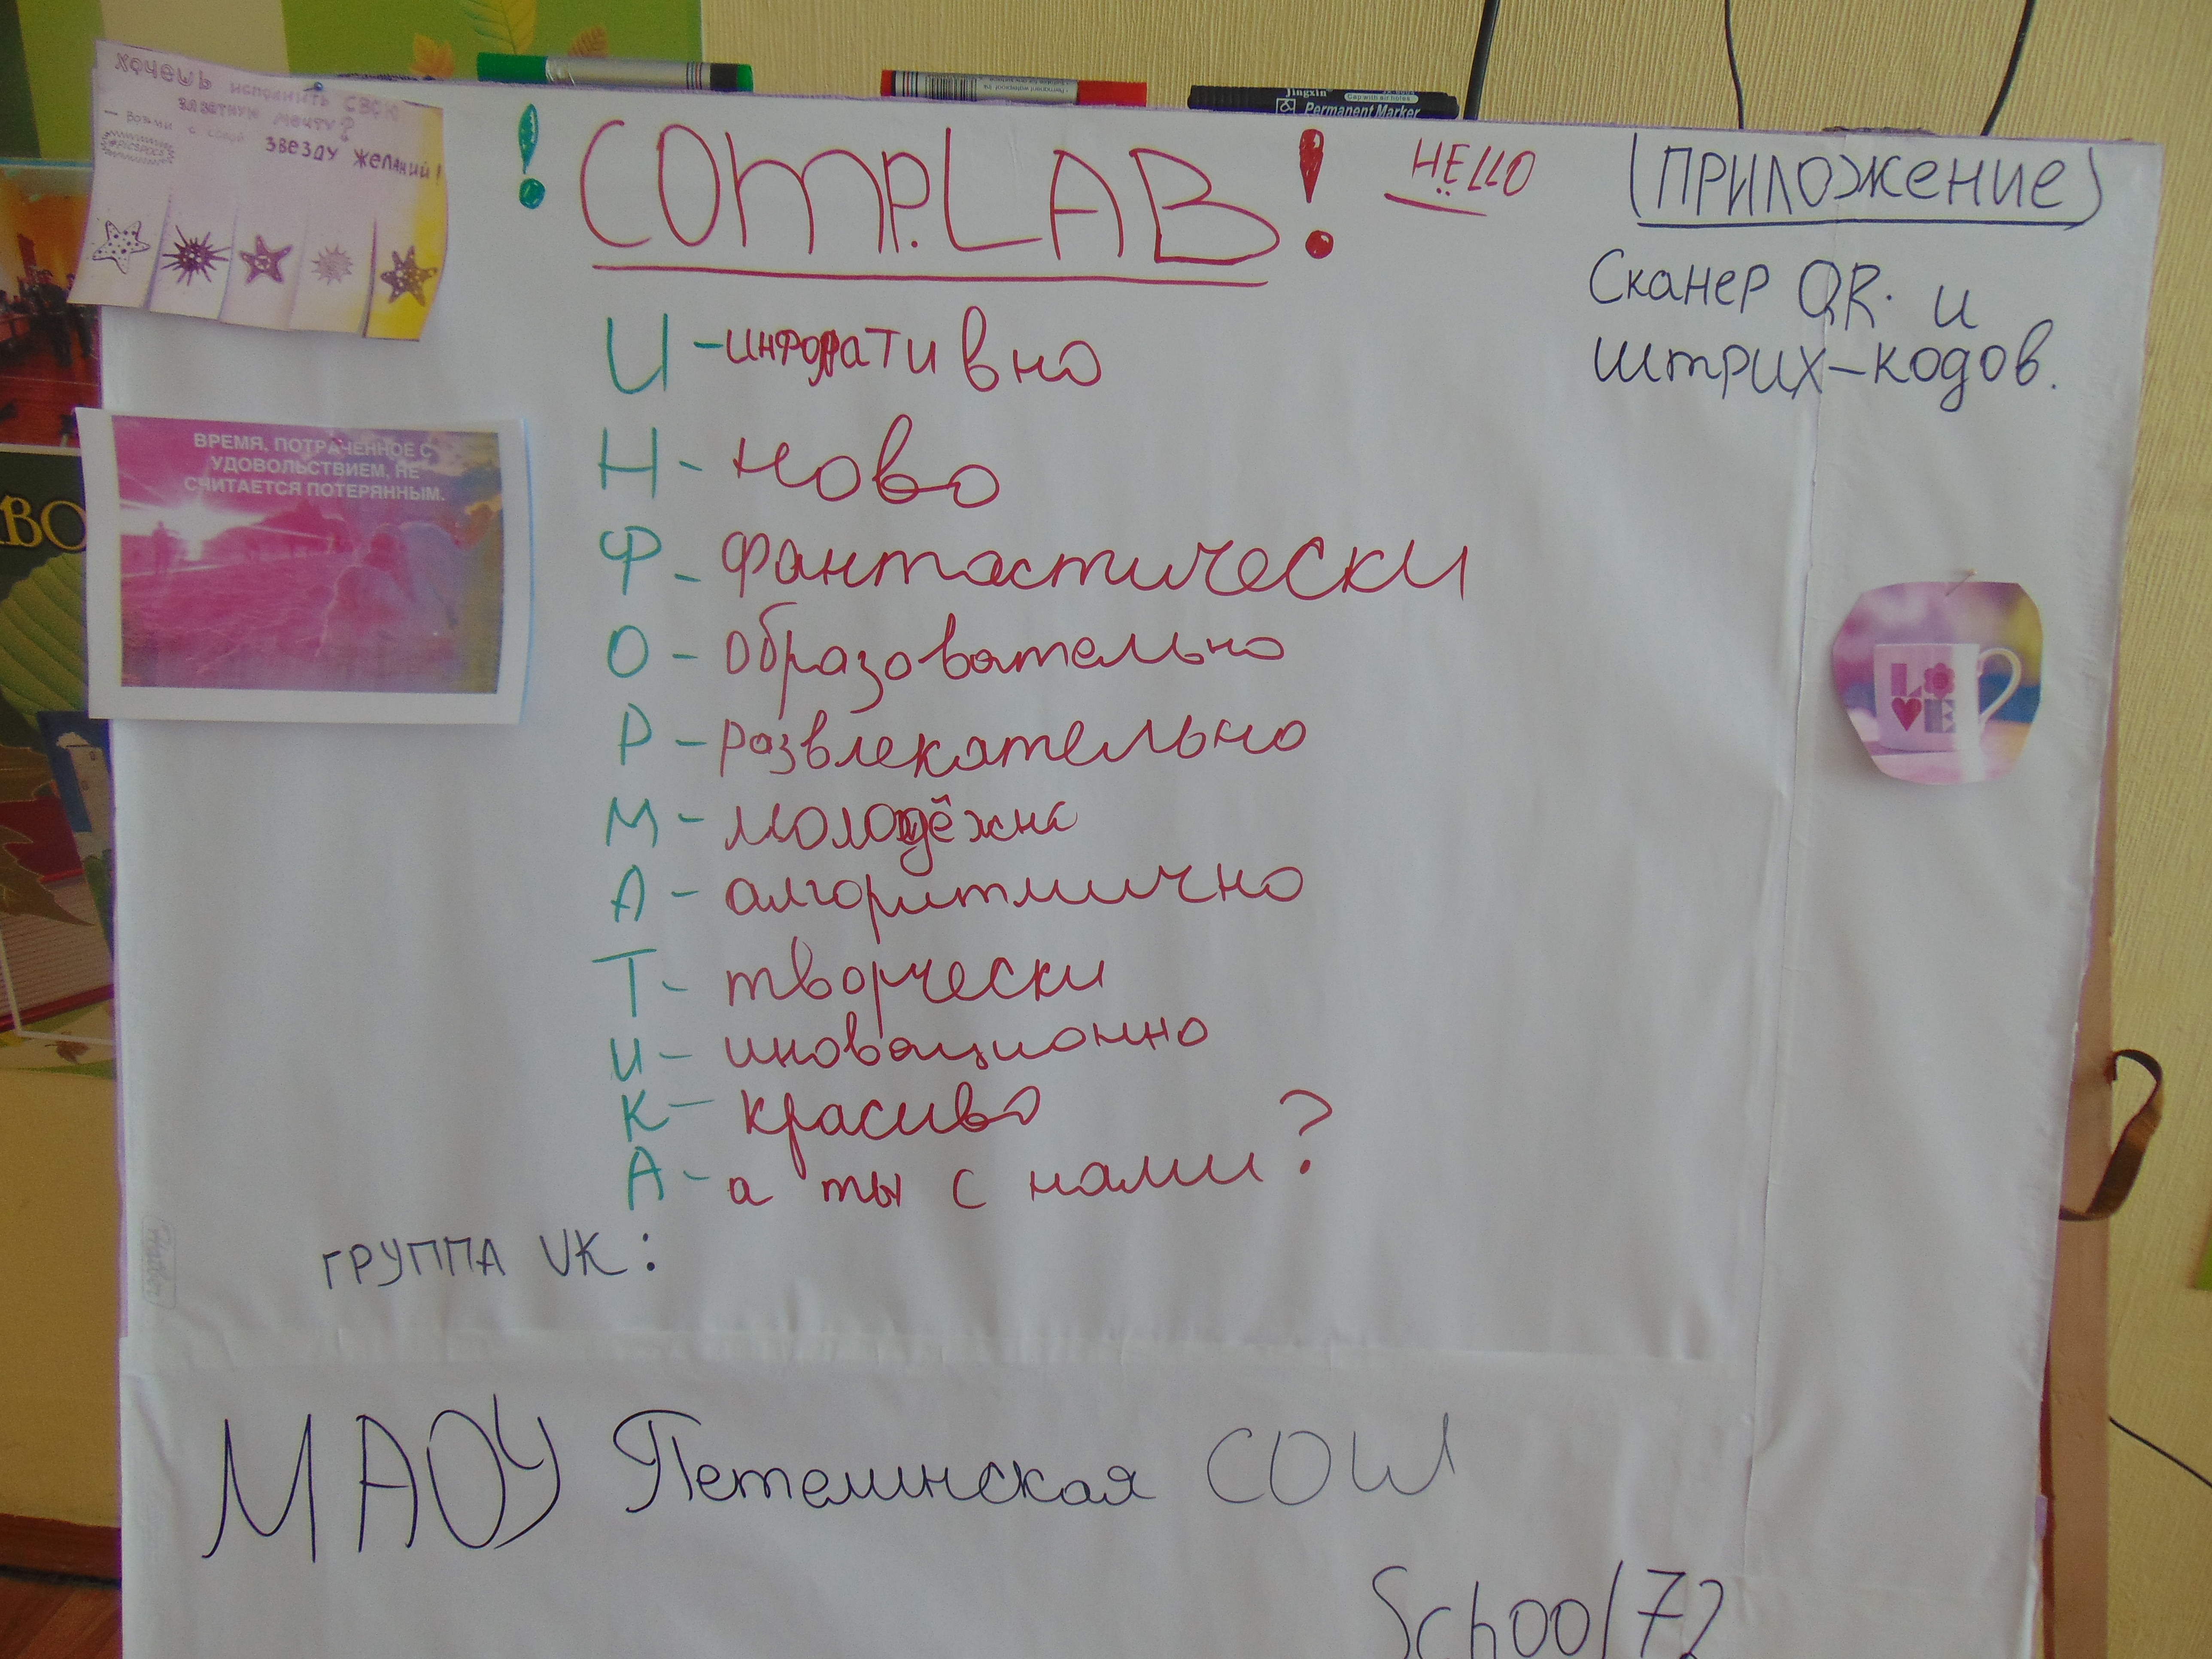 ХОЧЕШЬ исполнить СВОЮ
заветную мечту?
— Возьми с собой ЗВЕЗДУ ЖЕЛАНИЙ!
! COMP.LAB! HELLO
(ПРИЛОЖЕНИЕ)
Сканер QR. и
штрих-кодов.
И - информативно
Н - ново
Ф - фантастически
О - образовательно
Р - развлекательно
М - молодёжно
А - алгоритмично
Т - творчески
И - иновационно
К - красиво
А - а ты с нами?
ГРУППА VK:
МАОУ Петелинская СОШ
School72
ВРЕМЯ, ПОТРАЧЕННОЕ С
УДОВОЛЬСТВИЕМ, НЕ
СЧИТАЕТСЯ ПОТЕРЯННЫМ.
LOVE
Jingxin
Cap with air holes
Permanent Marker
ВО